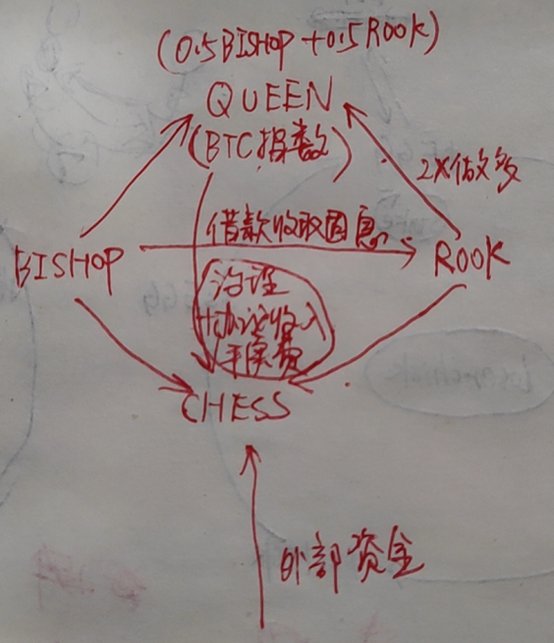 (0.5BISHOP+0.5ROOK)
QUEEN
(BTC指数)
2X做多
借款收取固息
BISHOP
ROOK
治理
+协议收入
手续费
CHESS
外部资金